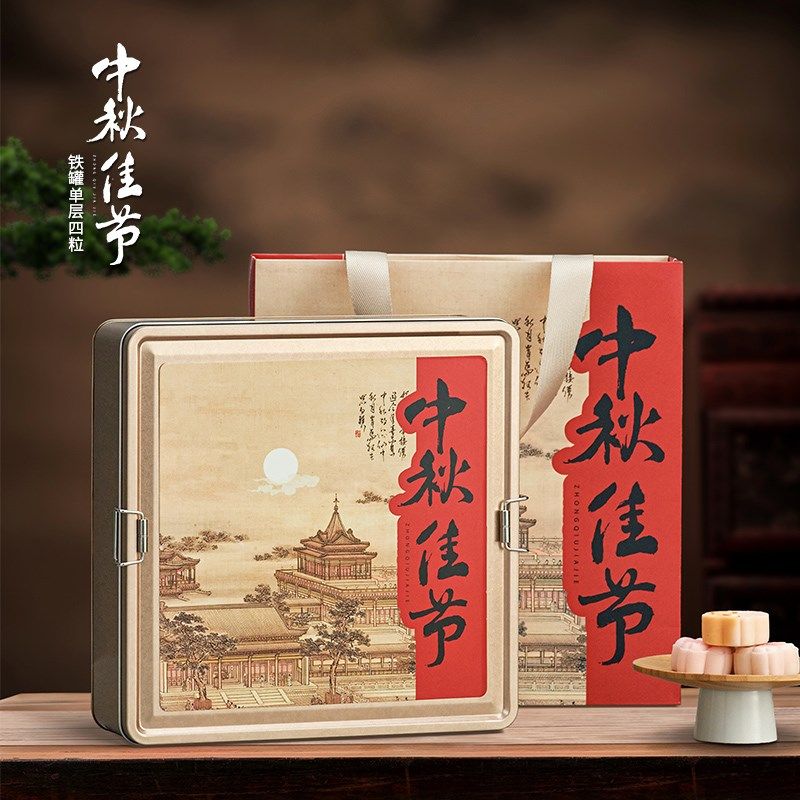 中秋佳节
ZHONG QIU JIA JIE
铁罐单层四粒
中秋佳节
ZHONGQIUJIAJIE
中秋佳节
ZHONGQIUJIAJIE